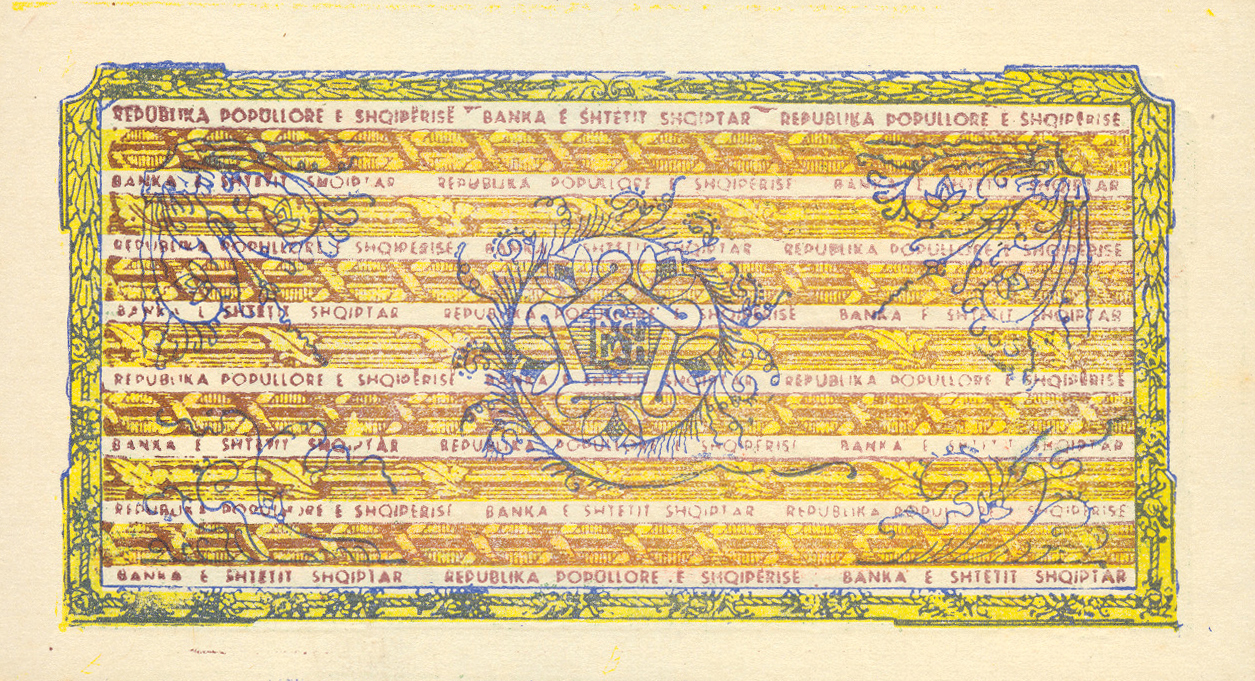 REPUBLIKA POPULLORE E SHQIPËRISË BANKA E SHTETIT SHQIPTAR REPUBLIKA POPULLORE E SHQIPËRISË
BANKA E SHTETIT SHQIPTAR REPUBLIKA POPULLORE E SHQIPËRISË BANKA E SHTETIT SHQIPTAR
REPUBLIKA POPULLORE E SHQIPËRISË BANKA E SHTETIT SHQIPTAR REPUBLIKA POPULLORE E SHQIPËRISË
BANKA E SHTETIT SHQIPTAR REPUBLIKA POPULLORE E SHQIPËRISË BANKA E SHTETIT SHQIPTAR
REPUBLIKA POPULLORE E SHQIPËRISË BANKA E SHTETIT SHQIPTAR REPUBLIKA POPULLORE E SHQIPËRISË
BANKA E SHTETIT SHQIPTAR REPUBLIKA POPULLORE E SHQIPËRISË BANKA E SHTETIT SHQIPTAR
REPUBLIKA POPULLORE E SHQIPËRISË BANKA E SHTETIT SHQIPTAR REPUBLIKA POPULLORE E SHQIPËRISË
BANKA E SHTETIT SHQIPTAR REPUBLIKA POPULLORE E SHQIPËRISË BANKA E SHTETIT SHQIPTAR